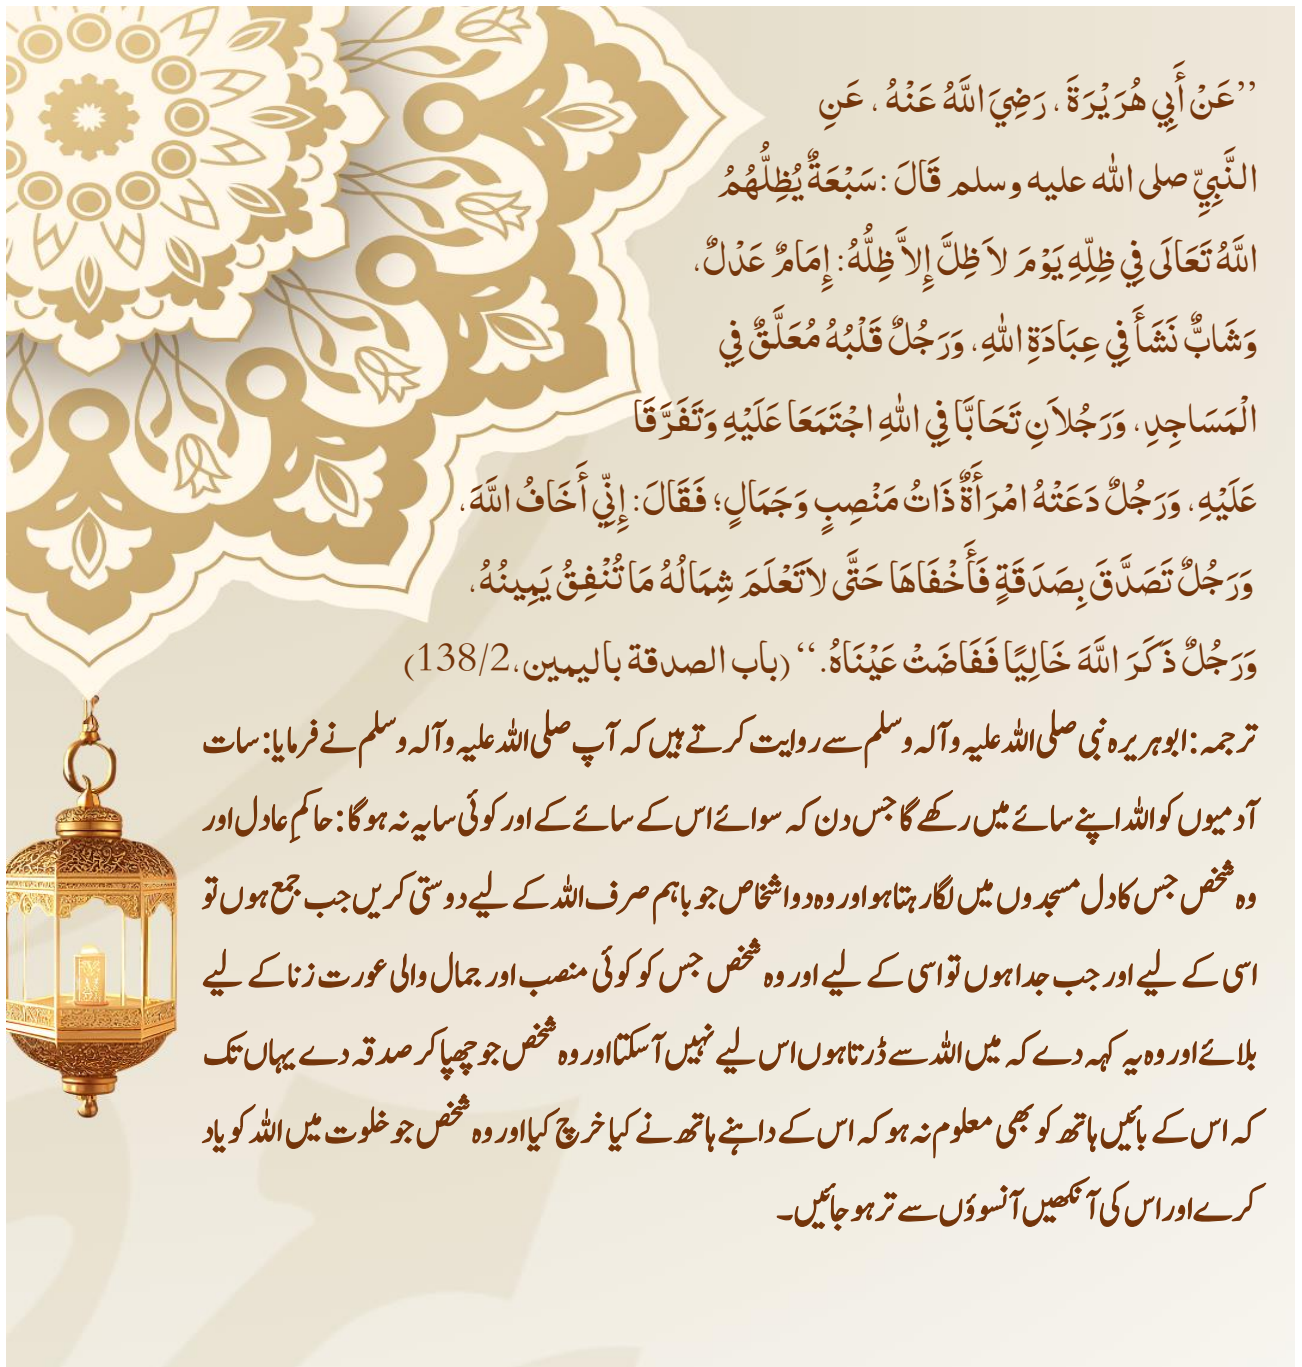 ’’عَنْ أَبِي هُرَيْرَةَ ، رَضِيَ اللَّهُ عَنْهُ ، عَنِ
النَّبِيِّ صلی اللہ علیہ وسلم قَالَ :سَبْعَةٌ يُظِلُّهُمُ
اللَّهُ تَعَالَى فِي ظِلِّهِ يَوْمَ لاَ ظِلَّ إِلاَّ ظِلُّهُ: إِمَامٌ عَدْلٌ،
وَشَابٌّ نَشَأَ فِي عِبَادَةِ اللهِ، وَرَجُلٌ قَلْبُهُ مُعَلَّقٌ فِي
الْمَسَاجِدِ، وَرَجُلاَنِ تَحَابَّا فِي اللهِ اجْتَمَعَا عَلَيْهِ وَتَفَرَّقَا
عَلَيْهِ، وَرَجُلٌ دَعَتْهُ امْرَأَةٌ ذَاتُ مَنْصِبٍ وَجَمَالٍ؛ فَقَالَ: إِنِّي أَخَافُ اللَّهَ،
وَرَجُلٌ تَصَدَّقَ بِصَدَقَةٍ فَأَخْفَاهَا حَتَّى لاَ تَعْلَمَ شِمَالُهُ مَا تُنْفِقُ يَمِينُهُ،
وَرَجُلٌ ذَكَرَ اللَّهَ خَالِيًا فَفَاضَتْ عَيْنَاهُ.‘‘ (باب الصدقة بالیمین،138/2)
ترجمہ: ابوہریرہ نبی صلی اللہ علیہ وآلہ وسلم سے روایت کرتے ہیں کہ آپ صلی اللہ علیہ وآلہ وسلم نے فرمایا: سات
آدمیوں کو اللہ اپنے سائے میں رکھے گا جس دن کہ سوائے اس کے سائے کے اور کوئی سایہ نہ ہوگا: حاکمِ عادل اور
وہ شخص جس کا دل مسجدوں میں لگا رہتا ہو اور وہ دو اشخاص جو باہم صرف اللہ کے لیے دوستی کریں جب جمع ہوں تو
اسی کے لیے اور جب جدا ہوں تو اسی کے لیے اور وہ شخص جس کو کوئی منصب اور جمال والی عورت زنا کے لیے
بلائے اور وہ یہ کہہ دے کہ میں اللہ سے ڈرتا ہوں اس لیے نہیں آسکتا اور وہ شخص جو چھپا کر صدقہ دے یہاں تک
کہ اس کے بائیں ہاتھ کو بھی معلوم نہ ہو کہ اس کے داہنے ہاتھ نے کیا خرچ کیا اور وہ شخص جو خلوت میں اللہ کو یاد
کرے اور اس کی آنکھیں آنسوؤں سے تر ہو جائیں۔